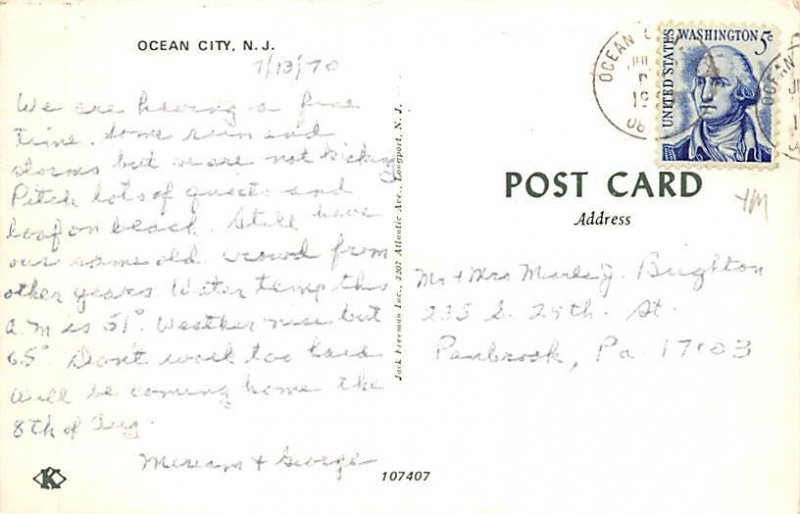 OCEAN CITY, N. J.
7/13/70
We are having a fine
time. Some rain and
storms but we are not kicking
Pitch lots of quoits and
loaf on beach. Still have
our same old crowd from
other years. Water temp this
a.m is 51°. Weather nice but
65°. Don't work too hard
Will be coming home the
8th of Aug.
Miriam + George
107407
K
Jack Freeman Inc., 3307 Atlantic Ave., Longport, N. J.
OCEAN C
19
OCEAN
UNITED STATES
WASHINGTON 5c
POST CARD
Address
YM
Mr + Mrs J. Brighton
235 S. 29th. St.
Penbrook, Pa. 17103